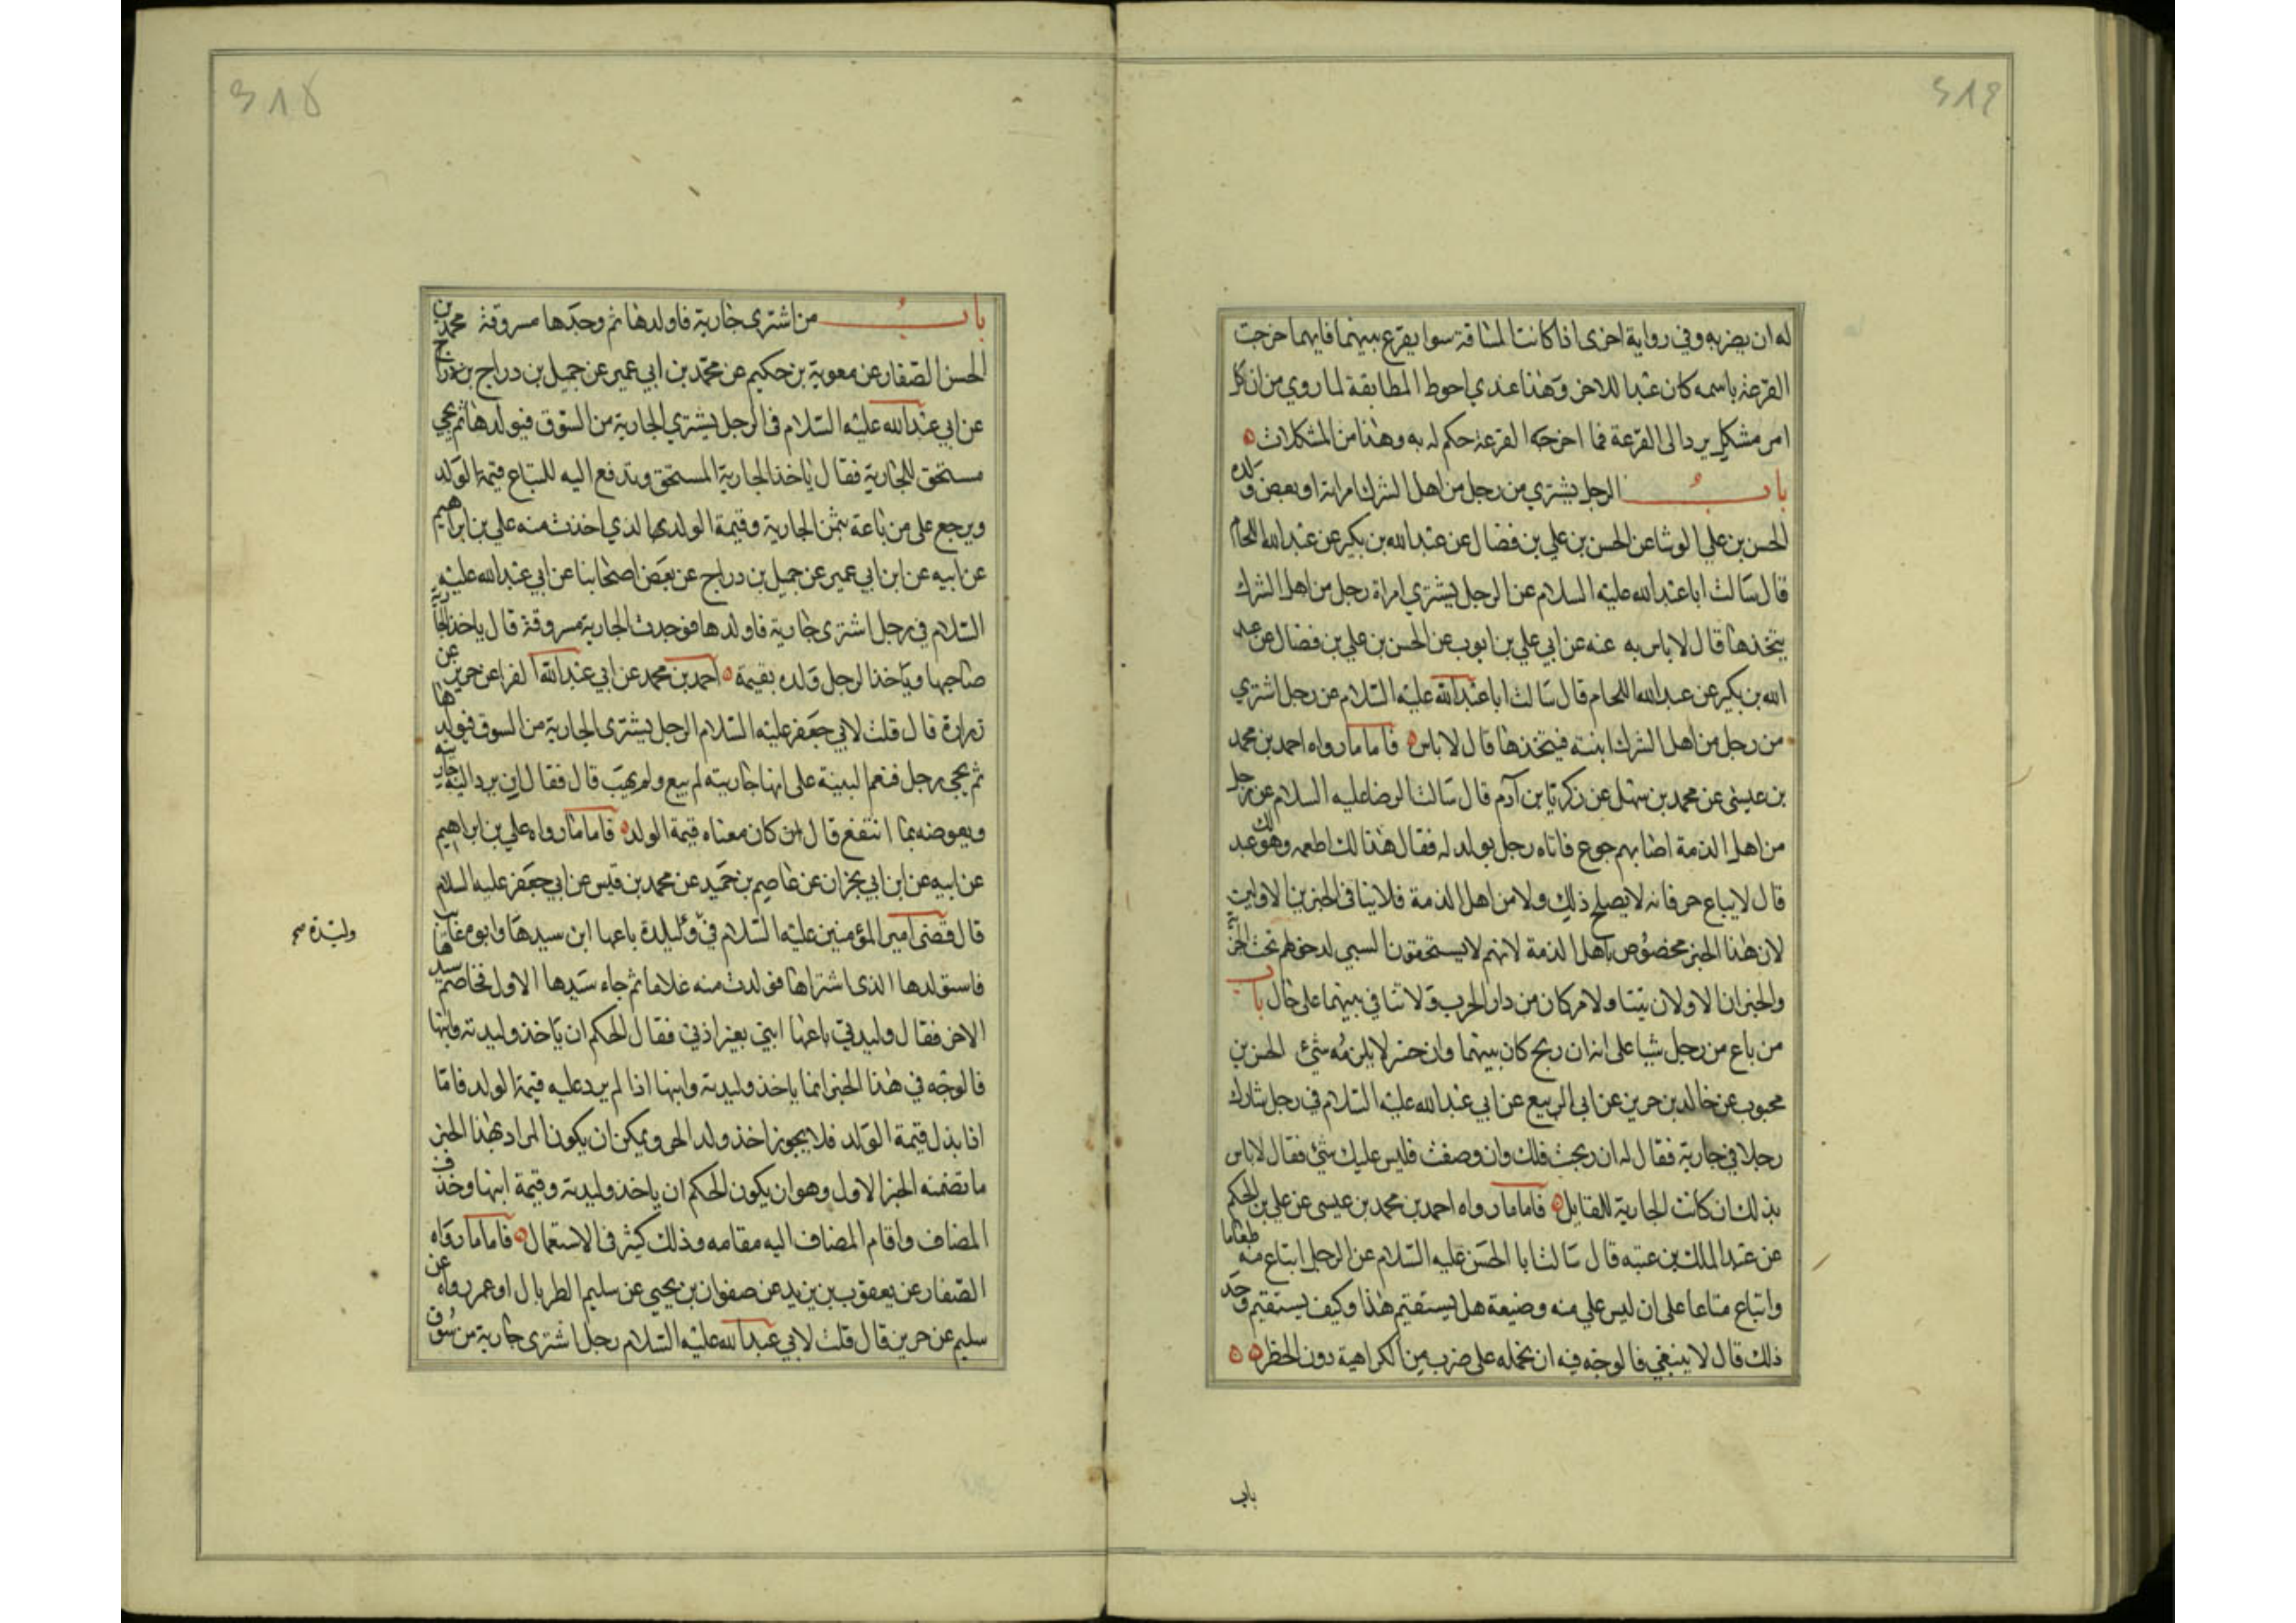 ٤١٩
له ان يضربه وفي رواية اخرى اذا كانت المسافة سوا يقرع بينهما فايهما خرجت
القرعة باسمه كان عبدا للاخر وهذا عندي احوط المطابقة لما روي من ان كل
امر مشكل يرد الى القرعة فما اخرجته القرعة حكم له به وهذا من المشكلات
باب الرجل يشتري من رجل من اهل الشرك امراته او بعض ولده
الحسن بن علي الوشا عن الحسن بن علي بن فضال عن عبدالله بن بكير عن عبدالله اللحام
قال سالت اباعبدالله عليه السلام عن الرجل يشتري امراة رجل من اهل الشرك
يتخذها قال لا باس به عنه عن ابي علي بن ايوب عن الحسن بن علي بن فضال عن عبد
الله بن بكير عن عبدالله اللحام قال سالت اباعبدالله عليه السلام عن رجل اشتري
من رجل من اهل الشرك ابنته فيتخذها قال لا باس فاما ما رواه احمد بن محمد
بن عيسى عن محمد بن سهل عن زكريا بن آدم قال سالت الرضا عليه السلام عن رجل
من اهل الذمة اصابهم جوع فاتاه رجل بولد له فقال هذا لك اطعمه وهو لك عبد
قال لا يباع حر فانه لا يصلح ذلك ولا من اهل الذمة فلا ينافى الخبرين الاولين
لان هذا الخبر مخصوص باهل الذمة لانهم لا يستحقون السبي لدخولهم تحت الجزية
والخبران الاولان يتنا ولا من كان من دار الحرب ولا تنافي بينهما على حال باب
من باع من رجل شيا على انه ان ربح كان بينهما وان خسر لا يلزمه شئ الحسن بن
محبوب عن خالد بن حرير عن ابي الربيع عن ابي عبدالله عليه السلام في رجل شارك
رجلا في جارية فقال له ان ربحت فلك وان وضعت فليس عليك شئ فقال لا باس
بذلك ان كانت الجارية للقايل فاما ما رواه احمد بن محمد بن عيسى عن علي بن الحكم
عن عبد الملك بن عتبه قال سالت ابا الحسن عليه السلام عن الرجل ابتاع منه طعاما
وابتاع متاعا على ان ليس علي منه وضيعة هل يستقيم هذا وكيف يستقيم وحد
ذلك قال لا ينبغي فالوجه فيه ان نحمله على ضرب من الكراهية دون الحظر
باب
باب من اشترى جارية فاولدها ثم وجدها مسروقة محمد بن
الحسن الصفار عن معوية بن حكيم عن محمد بن ابي عمير عن جميل بن دراج
عن ابي عبدالله عليه السلام فى الرجل يشتري الجارية من السوق فيولدها ثم يجي
مستحق للجارية فقال ياخذ الجارية المستحق ويدفع اليه المبتاع قيمة الولد
ويرجع على من باعة بثمن الجارية وقيمة الولد الذي اخذت منه علي بن ابراهيم
عن ابيه عن ابن ابي عمير عن جميل بن دراج عن بعض اصحابنا عن ابي عبدالله عليه
السلام في رجل اشترى جارية فاولدها فوجدت الجارية مسروقة قال ياخذ الجارية
صاحبها وياخذ الرجل ولده بقيمة احمد بن محمد عن ابي عبدالله الفرا عن حريز عن
زرارة قال قلت لابي جعفر عليه السلام الرجل يشترى الجارية من السوق فيولدها
ثم يجي رجل فيقيم البينة على انها جاريته لم يبع ولم يهب قال فقال ان يرد اليه جاريته
ويعوضه بما انتفع قال كان معناه قيمة الولد فاما ما رواه علي بن ابراهيم
عن ابيه عن ابن ابي نجران عن عاصم بن حميد عن محمد بن قيس عن ابي جعفر عليه السلام
قال قضى امير المؤمنين عليه السلام في وليدة باعها ابن سيدها وابوه غايب
وليدة صح
فاستولدها الذى اشتراها فولدت منه غلاما ثم جاء سيدها الاول فخاصم سيدها
الاخر فقال وليدتي باعها ابني بغير اذني فقال الحكم ان ياخذ وليدته وابنها
فالوجه في هذا الخبر انما ياخذ وليدته وابنها اذا لم يرد عليه قيمة الولد فاما
اذا بذل قيمة الولد فلا يجوز اخذ ولد الحر ويمكن ان يكون المراد بهذا الخبر
ما تضمنه الخبر الاول وهو ان يكون الحكم ان ياخذ وليدته وقيمة ابنها وحذف
المضاف واقام المضاف اليه مقامه وذلك كثير فى الاستعمال فاما ما رواه
الصفار عن يعقوب بن يزيد عن صفوان بن يحيى عن سليم الطربال او عمن رواه عن
سليم عن حريز قال قلت لابي عبدالله عليه السلام رجل اشترى جارية من سوق